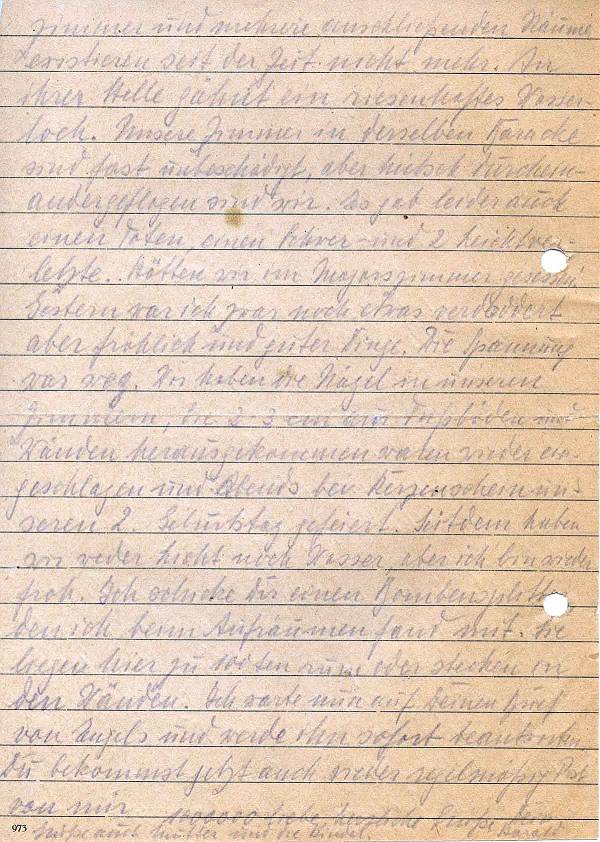 zimmer und mehrere anschließenden Räume
existieren seit der Zeit nicht mehr. An
ihrer Stelle gähnt ein riesenhaftes Wasser-
loch. Unsere Zimmer in derselben Baracke
sind fast unbeschädigt, aber durchein-
andergeflogen sind wir. Es gab leider auch
einen Toten, einen Schwer- und 2 Leichtver-
letzte. Hätten wir im Majorszimmer gesessen.
Gestern war ich zwar noch etwas verdoddert
aber fröhlich und guter Dinge. Die Spannung
war weg. Wir haben die Nägel in unseren
Zimmern, die 2-3 cm aus Fußböden und
Wänden herausgekommen waren wieder ein-
geschlagen und Abends bei Kerzenschein un-
seren 2. Geburtstag gefeiert. Seitdem haben
wir weder Licht noch Wasser, aber ich bin wieder
froh. Ich schicke Dir einen Bombensplitter
den ich beim Aufräumen fand mit. Sie
liegen hier zu rum oder stecken in
den Wänden. Ich warte nun auf Deinen Brief
von und werde ihn sofort beantworten.
Du bekommst jetzt auch wieder regelmäßig Post
von mir 1000000 liebe, herzliche Grüße Dein
Grüße auch Mutter und die Harald
973